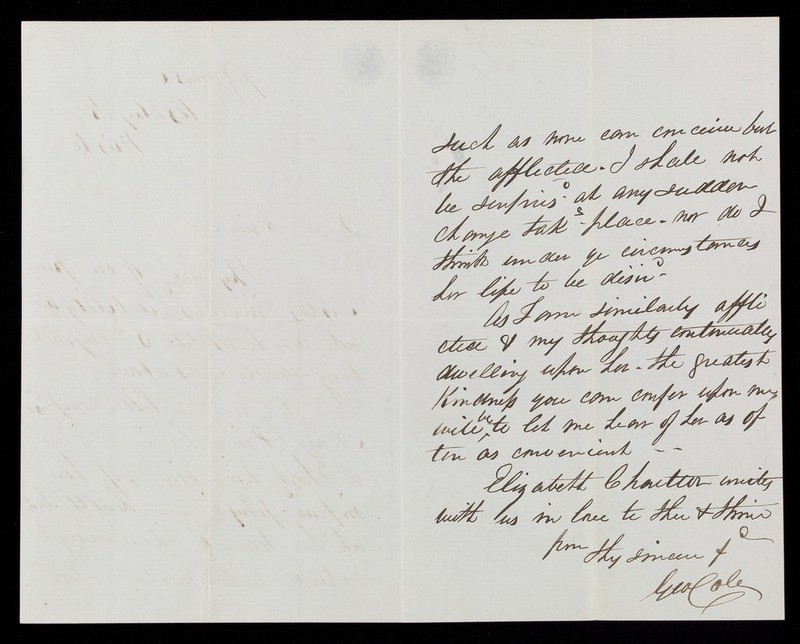 such as none can conceive but
the afflicted. I shall not
be surpris^d at any sudden
change tak^g place - nor do I
think under ye circumstances
her life to be desir^d -
As I am similarly affli
cted & my thoughts continually
dwelling upon her - the greatest
kindness you can confer upon me
will be to let me hear of her as of
ten as convenient - -
Elizabeth unites
with us in love to thee & thine
from thy sincere f^d
Geo Cole